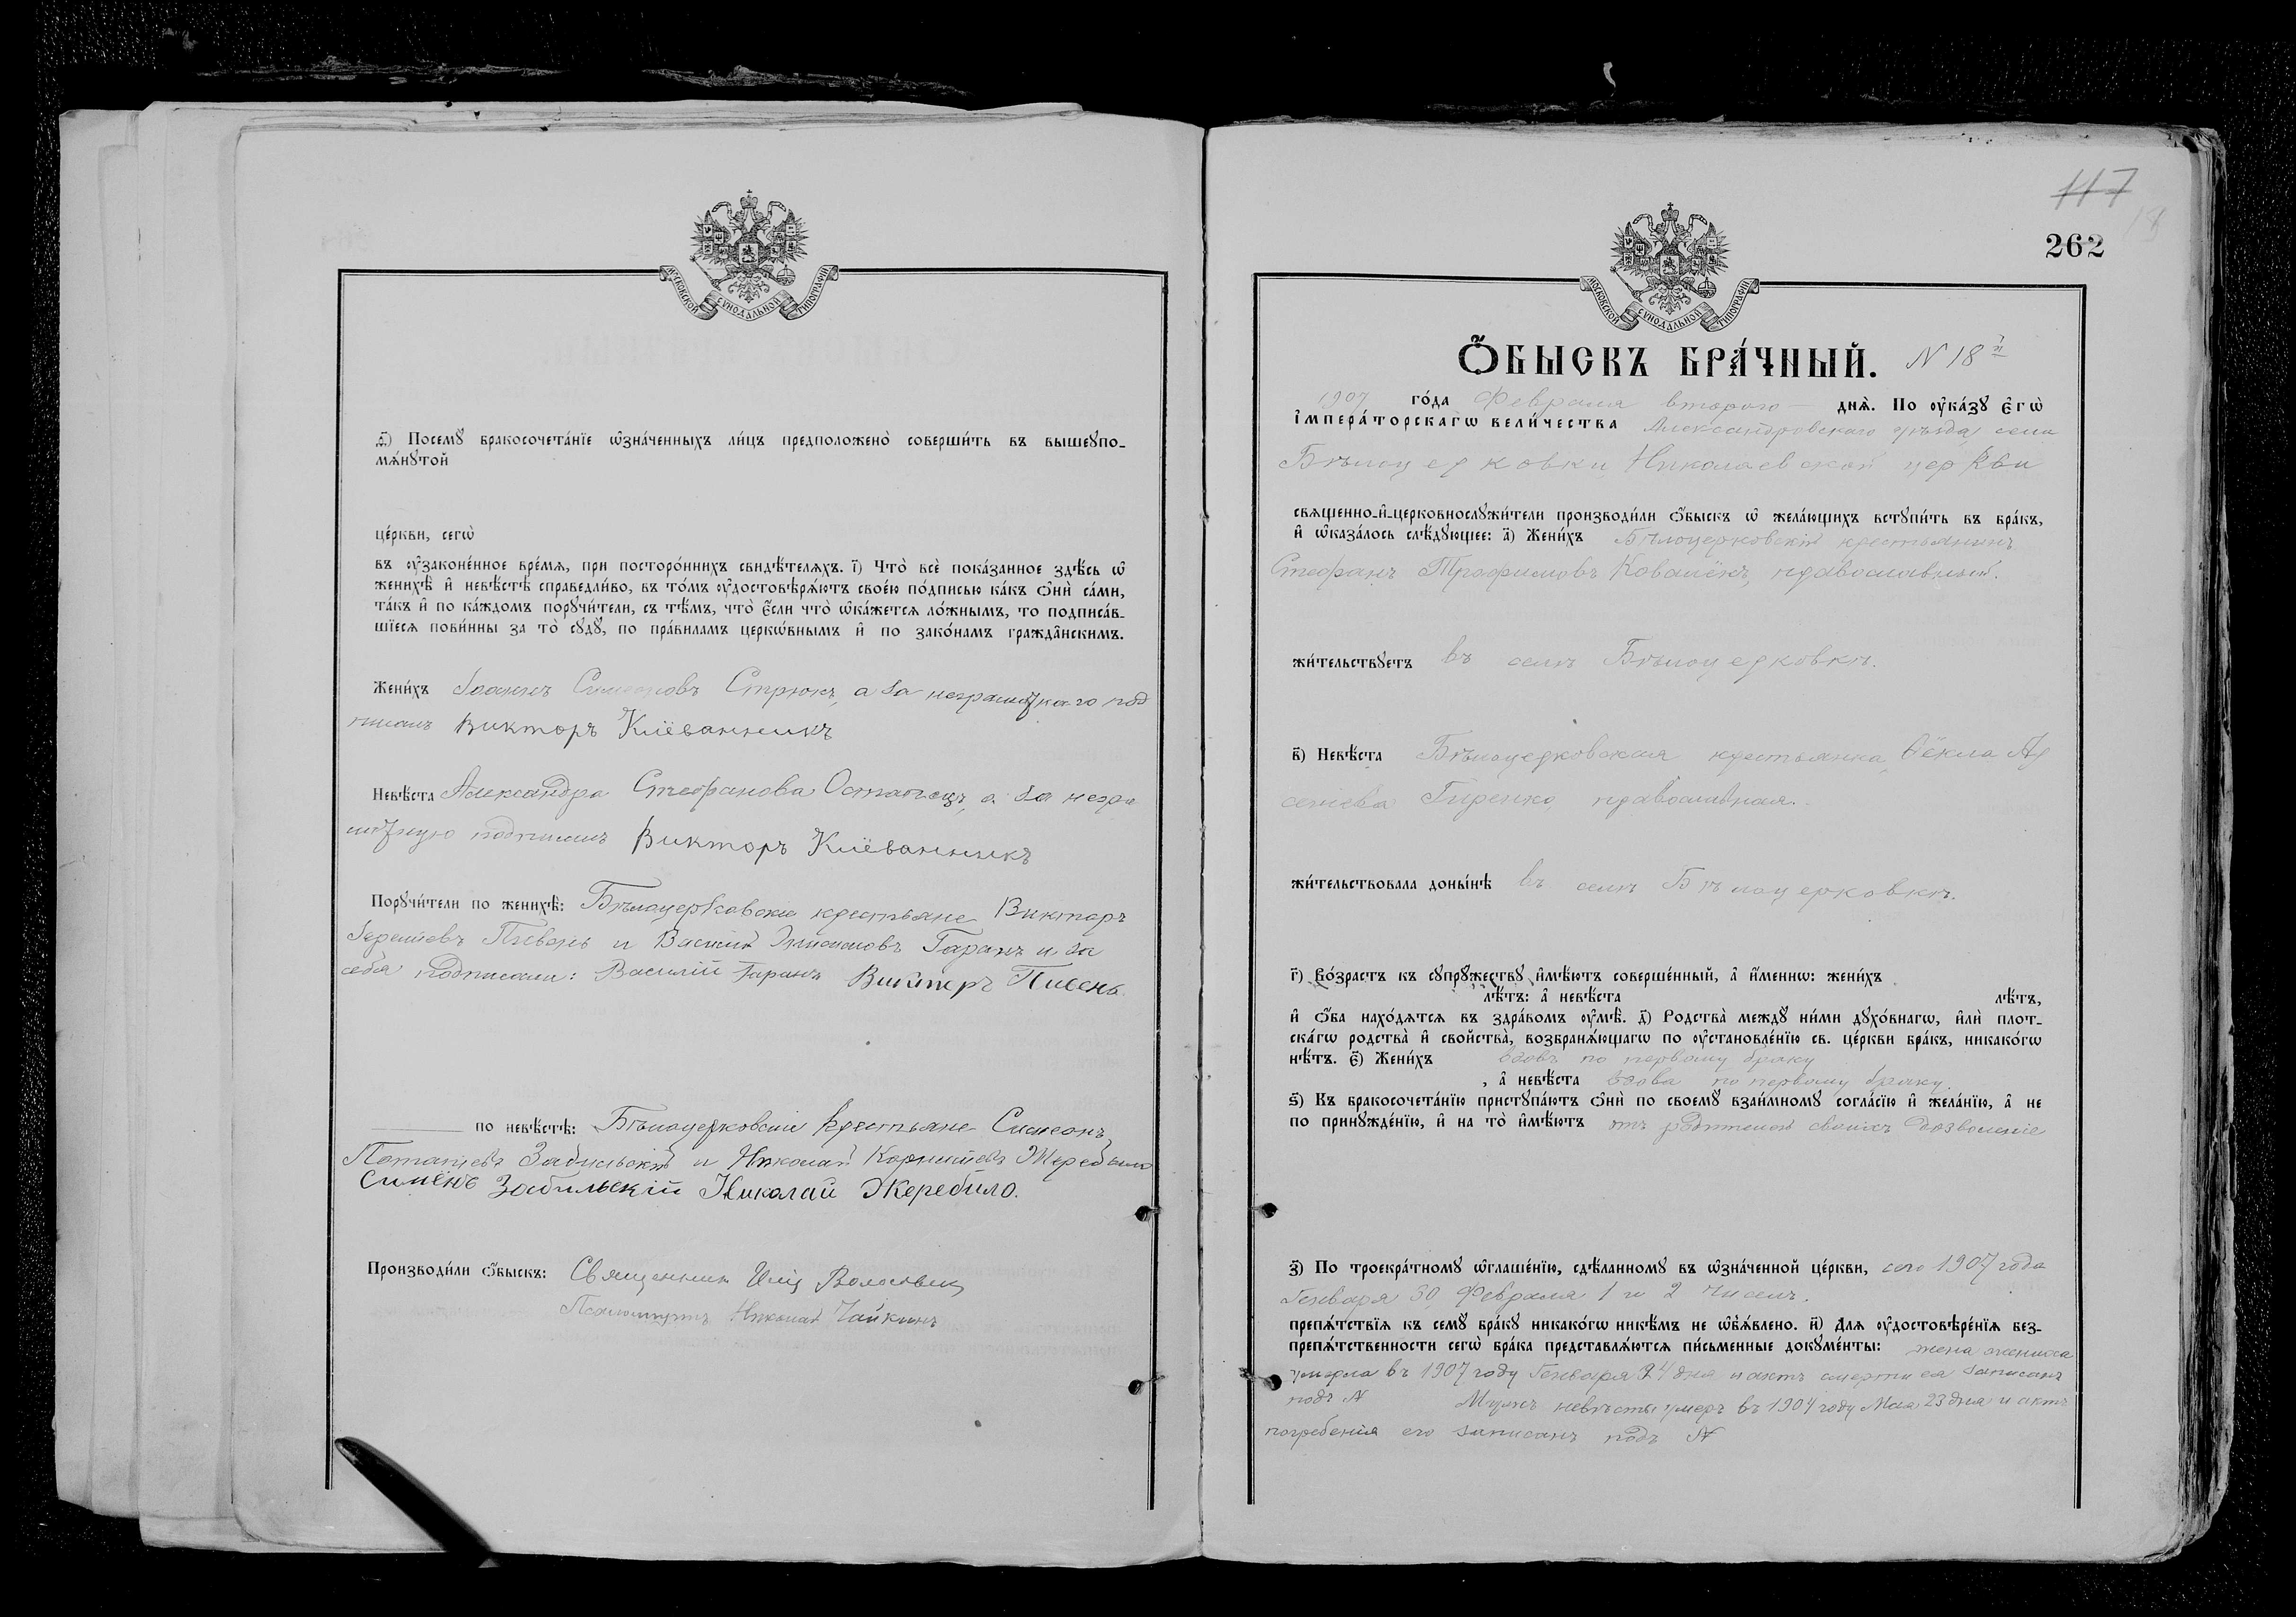 МОСКОВСКОЙ СУНОДАЛЬНОЙ ТИПОГРАФІИ
ѳ҃) Посемꙋ̀ бракосочета́нїе ѡ҆зна́ченныхъ ли́цъ предположено̀ соверши́ть въ вышеꙋпо-
мѧ́нꙋтой
це́ркви, сегѡ̀
въ ᲂу҆зако́ненное вре́мѧ, при посторо́ннихъ свидѣ́телѧхъ. і҃) Что̀ всѐ пока́занное здѣ́сь ѡ҆
женихѣ̀ и҆ невѣ́стѣ справедли́во, въ то́мъ ᲂу҆достовѣрѧ́ютъ свое́ю по́дписью ка́къ ѻ҆нѝ са́ми,
та́къ и҆ по ка́ждомъ порꙋчи́тели, съ тѣ́мъ, что̀ є҆́сли что̀ ѡ҆ка́жетсѧ ло́жнымъ, то подписа́в-
шїесѧ пови́нны за то̀ сꙋдꙋ̀, по пра́виламъ церкѡ́внымъ и҆ по зако́намъ гражда̑нскимъ.
Жени́хъ Іоаннъ Симеоновъ Стрюкъ, а за неграмотнаго под
писалъ Викторъ Кліёванникъ
Невѣ́ста Александра Стефанова Остапецъ, а за негра
мотную подписалъ Викторъ Кліёванникъ
Порꙋчи́тели по женихѣ̀: Бѣлоцерковскіе крестьяне Викторъ
Пивень и Василій Гаранъ и за
себя подписали: Василій Гаранъ Викторъ Пивень
по невѣ́стѣ: Бѣлоцерковскіе крестьяне Симеонъ
Потапіевъ Забильскій и Николай Корниліевъ Жеребило
Симёнъ Забильскій Николай Жеребило.
Производи́ли ѻ҆́быскъ: Священник Волосовик
Псаломщикъ Николай Чайкинъ
117
18
262
МОСКОВСКОЙ СУНОДАЛЬНОЙ ТИПОГРАФІИ
Ѻ҆́быскъ бра́чный. N 18й
1907 го́да Февраля второго днѧ̀. По ᲂу҆ка́зꙋ є҆гѡ̀
і҆мпера́торскагѡ вели́чества Александровскаго уѣзда, села
Бѣлоцерковки, Николаевской церкви
свѧщенно-и҆-церковнослꙋжи́тели производи́ли ѻ҆́быскъ ѡ҆ жела́ющихъ встꙋпи́ть въ бра́къ,
и҆ ѡ҆каза́лось слѣ́дꙋющее: а҃) Жени́хъ Бѣлоцерковскій крестьянинъ
Стефанъ Трофимовъ Ковалёкъ, православный.
жи́тельствꙋетъ въ селѣ Бѣлоцерковкѣ.
в҃) Невѣ́ста Бѣлоцерковская крестьянка Ѳёкла Ар
сеніева Гиренко, православная.
жи́тельствовала доны́нѣ въ селѣ Бѣлоцерковкѣ.
г҃) Во́зрастъ къ сꙋпрꙋ́жествꙋ и҆мѣ́ютъ соверше́нный, а҆ и҆́меннѡ: жени́хъ
лѣ́тъ: а҆ невѣ́ста лѣ́тъ,
и҆ ѻ҆́ба нахо́дѧтсѧ въ здра́вомъ ᲂу҆мѣ̀. д҃) Родства̀ междꙋ ни́ми дꙋхо́внагѡ, и҆лѝ плот-
ска́гѡ родства̀ и҆ свойства̀, возбранѧ́ющагѡ по ᲂу҆становле́нїю св. це́ркви бра́къ, никако́гѡ
нѣ́тъ. є҃) Жени́хъ вдовъ по первому браку
, а҆ невѣ́ста вдова по первому браку.
ѕ҃) Къ бракосочета́нїю пристꙋпа́ютъ ѻ҆нѝ по своемꙋ̀ взаи́мномꙋ согла́сїю и҆ жела́нїю, а҆ не
по принꙋжде́нїю, и҆ на то̀ и҆мѣ́ютъ отъ родителей своихъ дозволеніе
з҃) По троекра́тномꙋ ѡ҆глаше́нїю, сдѣ́ланномꙋ въ ѡ҆зна́ченной це́ркви, сего 1907 года
Генваря 30, Февраля 1 и 2 чиселъ.
препѧ́тствїѧ къ семꙋ̀ бра́кꙋ никако́гѡ никѣ́мъ не ѡ҆б̾ѧ́влено. и҃) Для ᲂу҆достовѣре́нїѧ без-
препѧ́тственности сегѡ̀ бра́ка представлѧ́ютсѧ пи́сьменные докꙋме́нты: жена жениха
умерла въ 1907 году Генваря 24 дня и актъ смерти ея записанъ
подъ N Мужъ невѣсты умеръ въ 1904 году Мая 23 дня и актъ
погребенія его записанъ подъ N